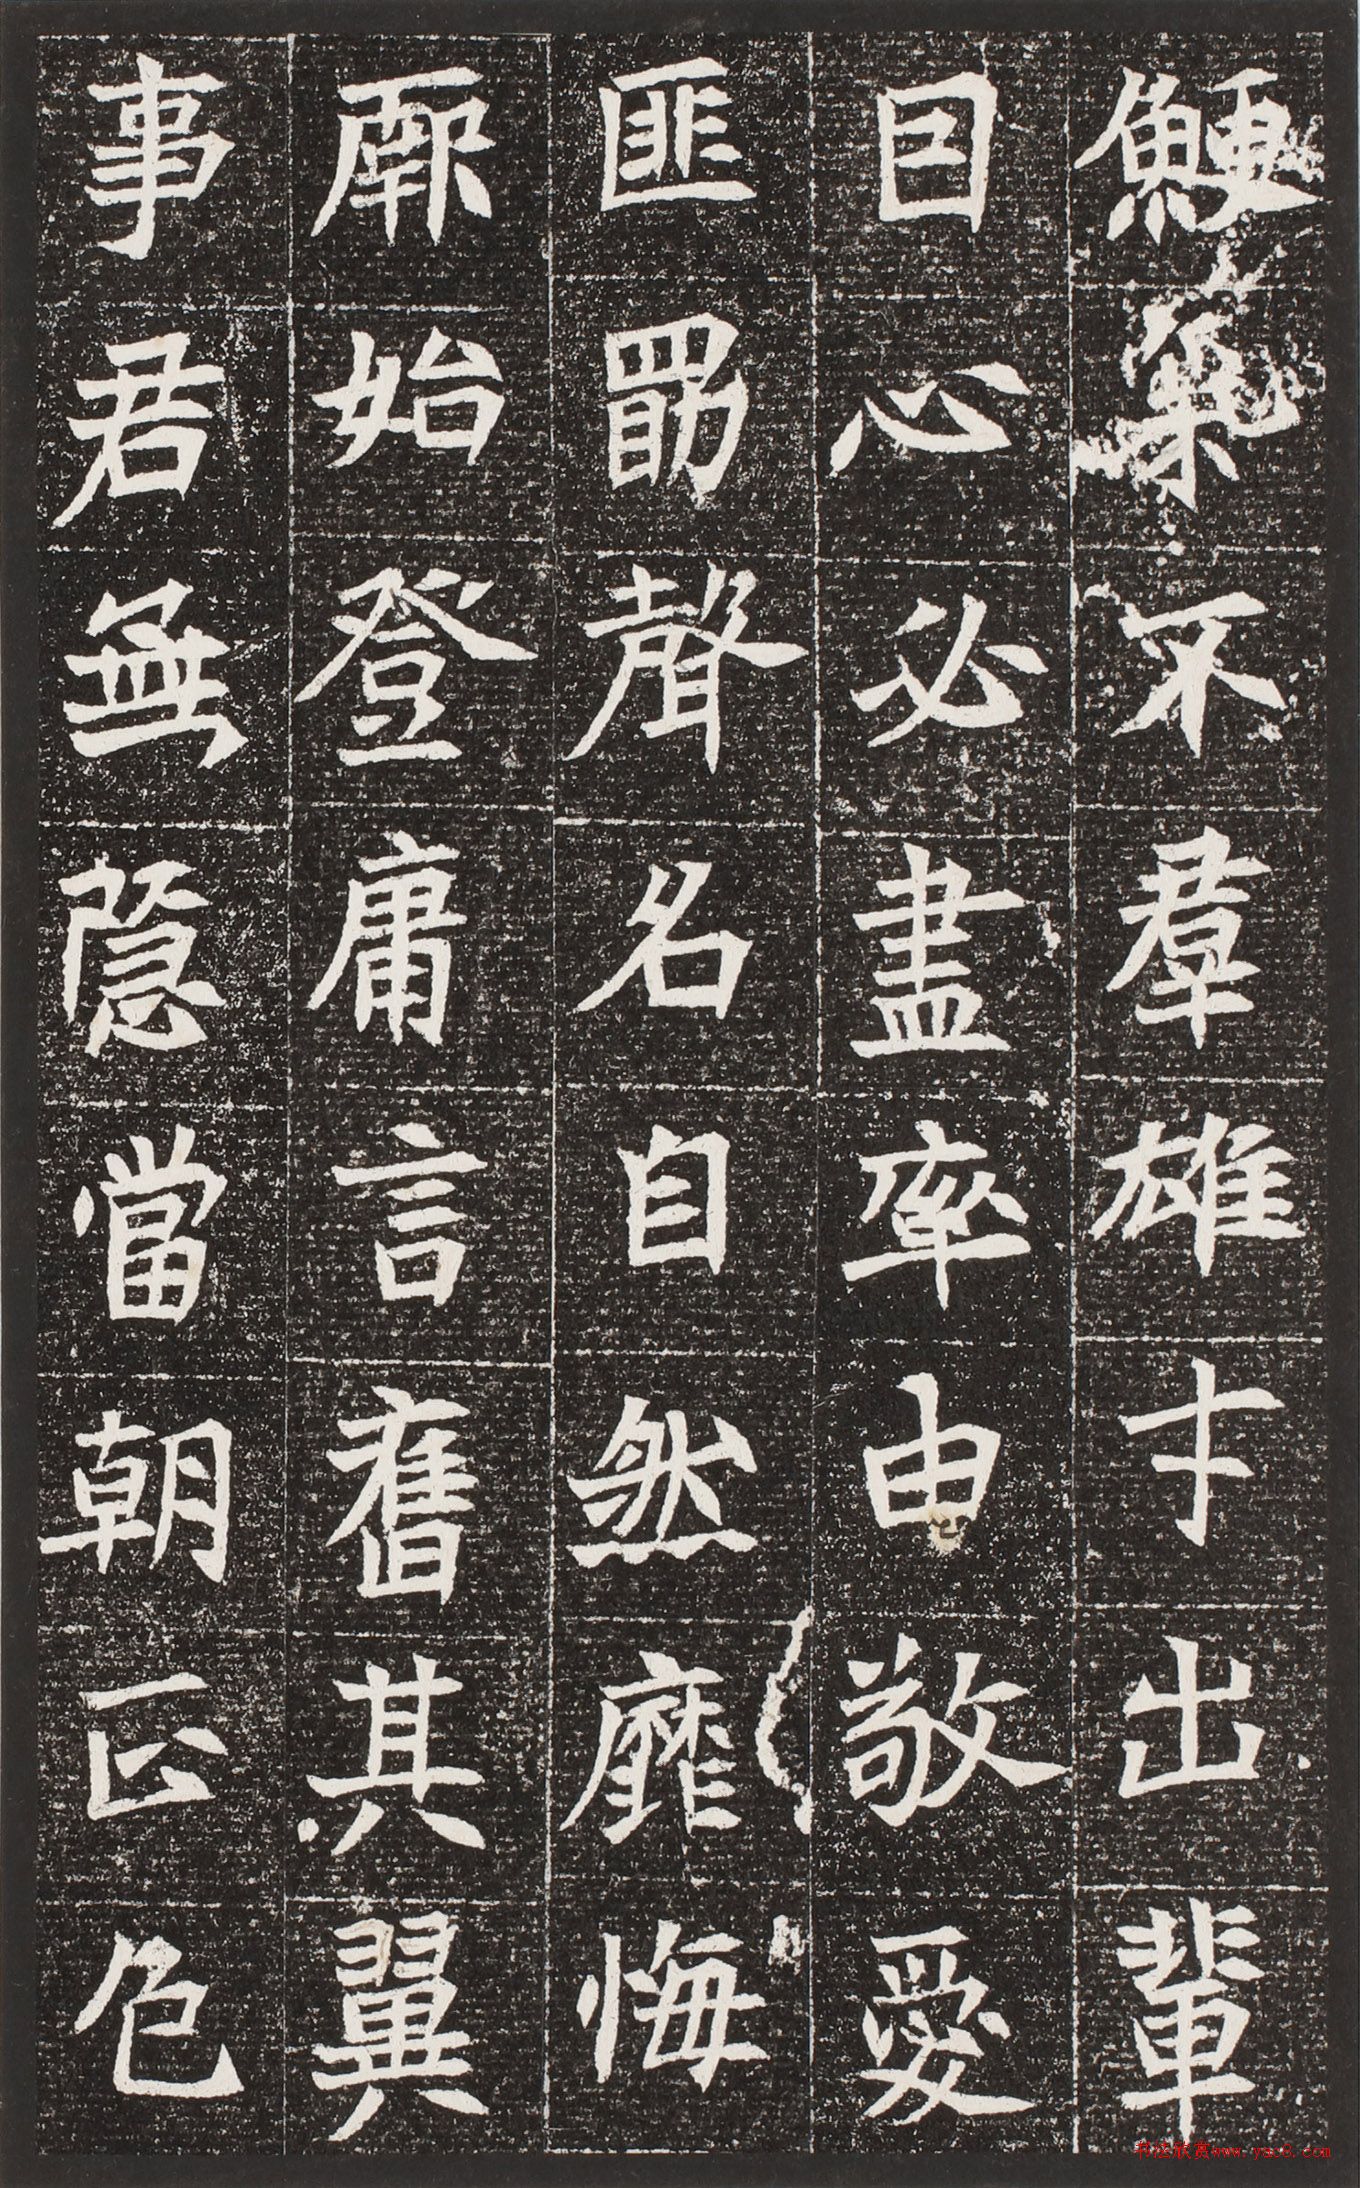 鯁不羣雄才出輩
囙心必盡率由敬愛
匪勖聲名自然靡悔
始登庸言奮其翼
事君無隱當朝正色
书法欣赏www.yac8.com